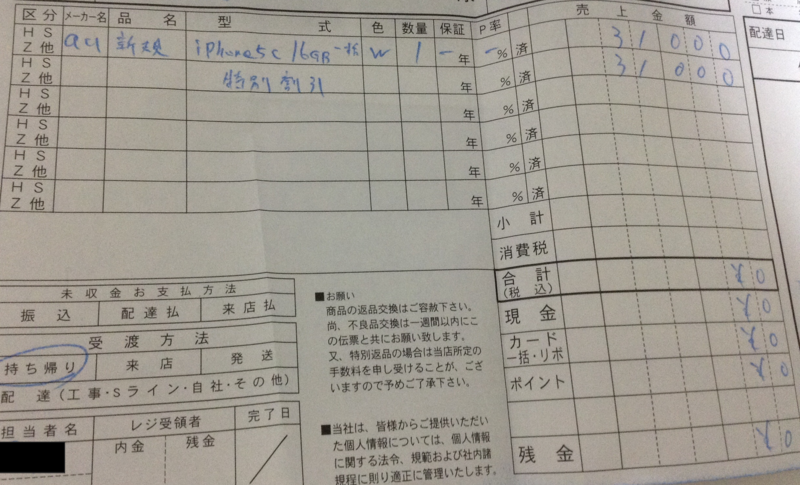 区分 メーカー名 品名 型式 色 数量 保証 P率 売上金額 配達日
HS Z他 au 新規 iPhone5c 16GB 一括 W 1 ー年 ー% 済 31000
HS Z他 特別割引 年 % 済 31000
HS Z他 年 % 済
HS Z他 年 % 済
HS Z他 年 % 済
HS Z他 年 % 済
小計
消費税
合計(税込) ¥0
現金 ¥0
カード 一括・リボ ¥0
ポイント ¥0
残金 ¥0
未収金お支払方法
振込 配達払 来店払
受渡方法
持ち帰り 来店 発送
配達(工事・Sライン・自社・その他)
担当者名 レジ受領者 完了日
内金 残金
■お願い
商品の返品交換はご容赦下さい。
尚、不良品交換は一週間以内にこ
の伝票と共にお願い致します。
又、特別返品の場合は当店所定の
手数料を申し受けることが、ござ
いますので予めご了承下さい。
■当社は、皆様からご提供いただい
た個人情報については、個人情報
に関する法令、規範および社内諸
規程に則り適正に管理いたします。